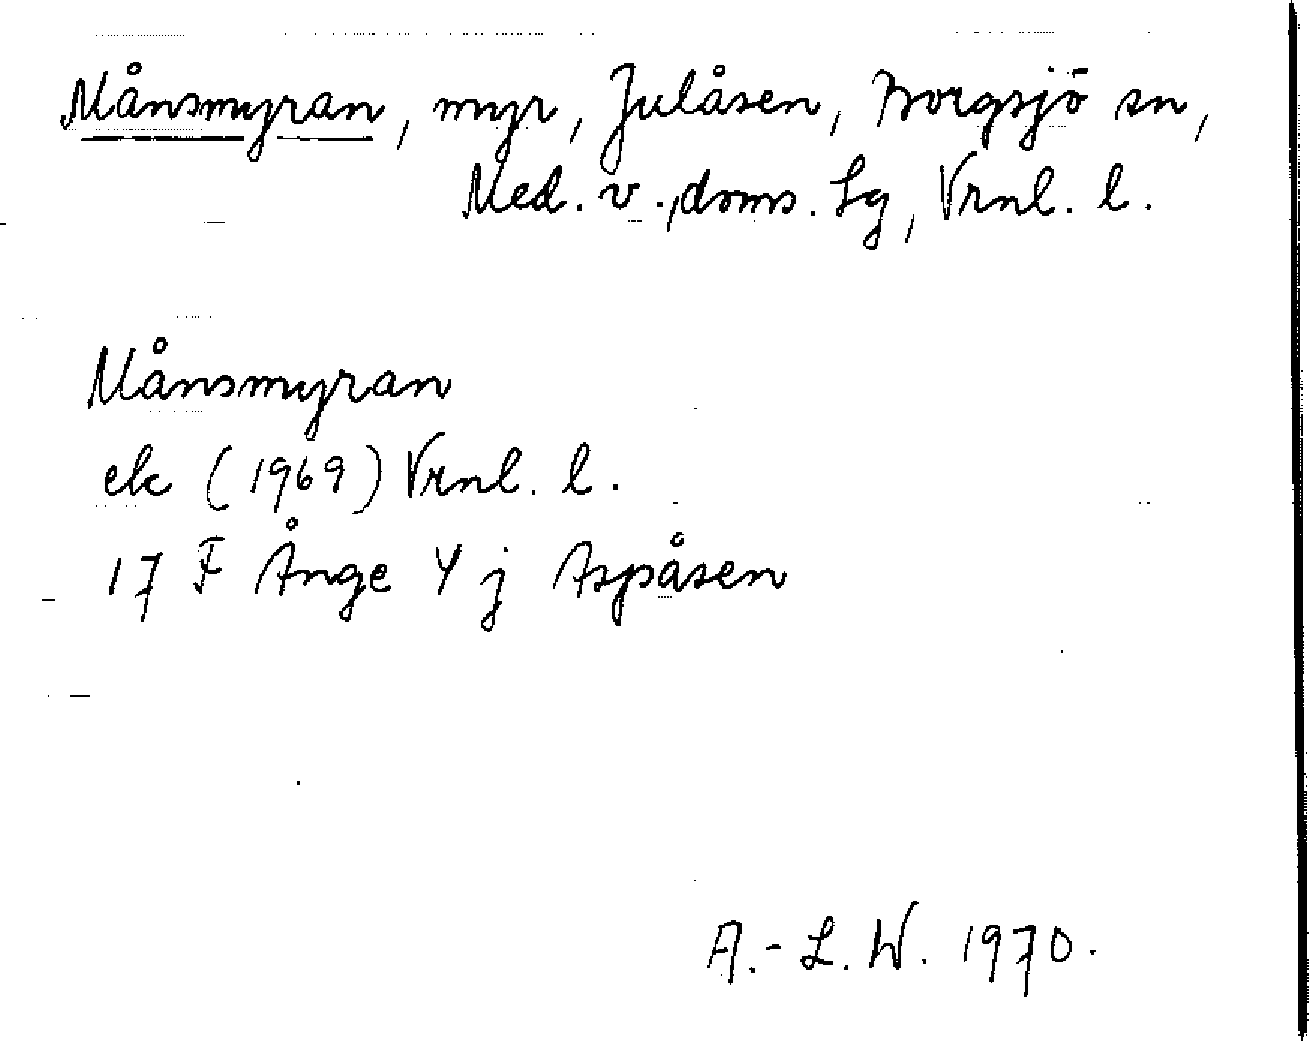 Månsmyran, myr, Julåsen, Borgsjö sn,
Med. v., doms. Lg, Vrnl. l.
Månsmyran
ek (1969) Vrnl. l.
17 F Ånge 4 j Aspåsen
A.-L. W. 1970.